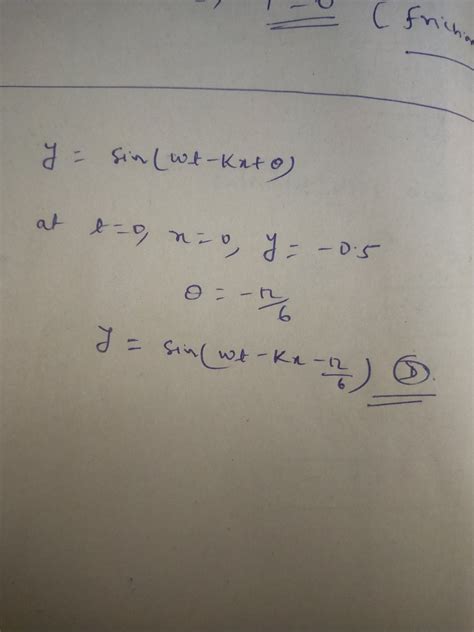 (friction
y = sin(wt-Kx+θ)
at t=0, x=0, y= -0.5
θ = -π/6
y = sin(wt-Kx-π/6) Ⓓ.